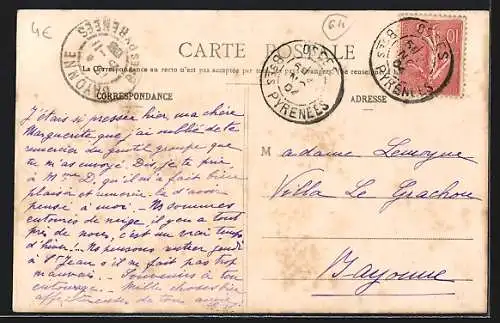 4€
64
CARTE POSTALE
La Correspondance au recto n'est pas acceptée par tous les pays étrangers. (Se renseigner
CORRESPONDANCE
ADRESSE
BAYONNE
OSSES
BSES PYRENEES
OSSES
BSES PYRENEES
10
J'étais si pressée hier, ma chère
Marguerite que j'ai oublié de te
remercier du gentil groupe que
tu m'as envoyé. Dis, je te prie
à Mme D, qu'il m'a fait bien
plaisir et remercie la d'avoir
pensé à moi. - Nous sommes
entourés de neige il y en a tout
près de nous, c'est un vrai temps
d'hiver. - Nous pensons rester jeudi
à St Jean s'il ne fait pas trop
mauvais. - Souvenirs à ton
entourage. - Mille choses bien
affectueuses de tous
Madame Lemoyne
Villa Le Grachou
Bayonne